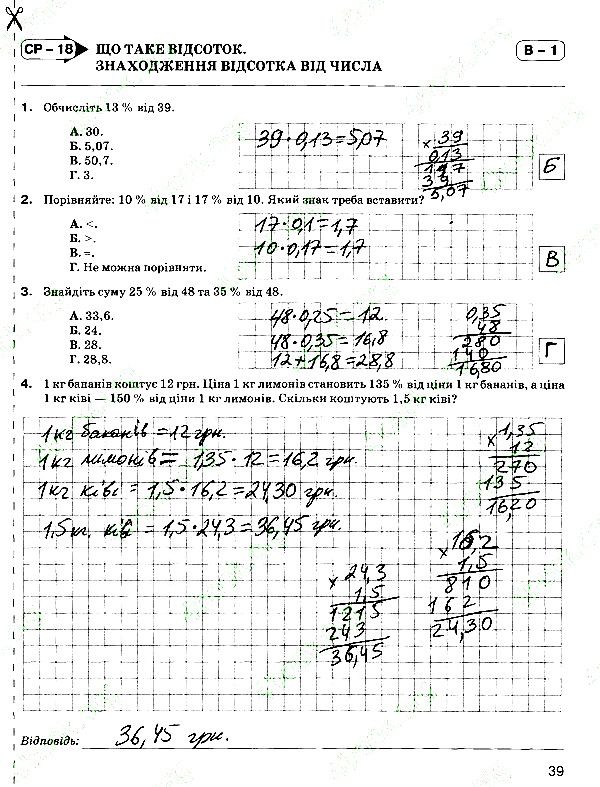 СР – 18
ЩО ТАКЕ ВІДСОТОК.
ЗНАХОДЖЕННЯ ВІДСОТКА ВІД ЧИСЛА
В – 1
1. Обчисліть 13 % від 39.
А. 30.
Б. 5,07.
В. 50,7.
Г. 3.
39·0,13=5,07
× 39
0,13
117
39
5,07
Б
2. Порівняйте: 10 % від 17 і 17 % від 10. Який знак треба вставити?
А. <.
Б. >.
В. =.
Г. Не можна порівняти.
17·0,1=1,7
10·0,17=1,7
В
3. Знайдіть суму 25 % від 48 та 35 % від 48.
А. 33,6.
Б. 24.
В. 28.
Г. 28,8.
48·0,25=12
48·0,35=16,8
12+16,8=28,8
0,35
48
280
140
16,80
Г
4. 1 кг бананів коштує 12 грн. Ціна 1 кг лимонів становить 135 % від ціни 1 кг бананів, а ціна
1 кг ківі — 150 % від ціни 1 кг лимонів. Скільки коштують 1,5 кг ківі?
1кг бананів =12 грн.
1кг лимонів= 1,35·12=16,2 грн.
1кг ківі = 1,5·16,2=24,30 грн.
1,5кг. ківі =1,5·24,3=36,45 грн.
× 1,35
12
270
135
16,20
× 24,3
1,5
1215
243
36,45
× 16,2
1,5
810
162
24,30
Відповідь: 36,45 грн.
39